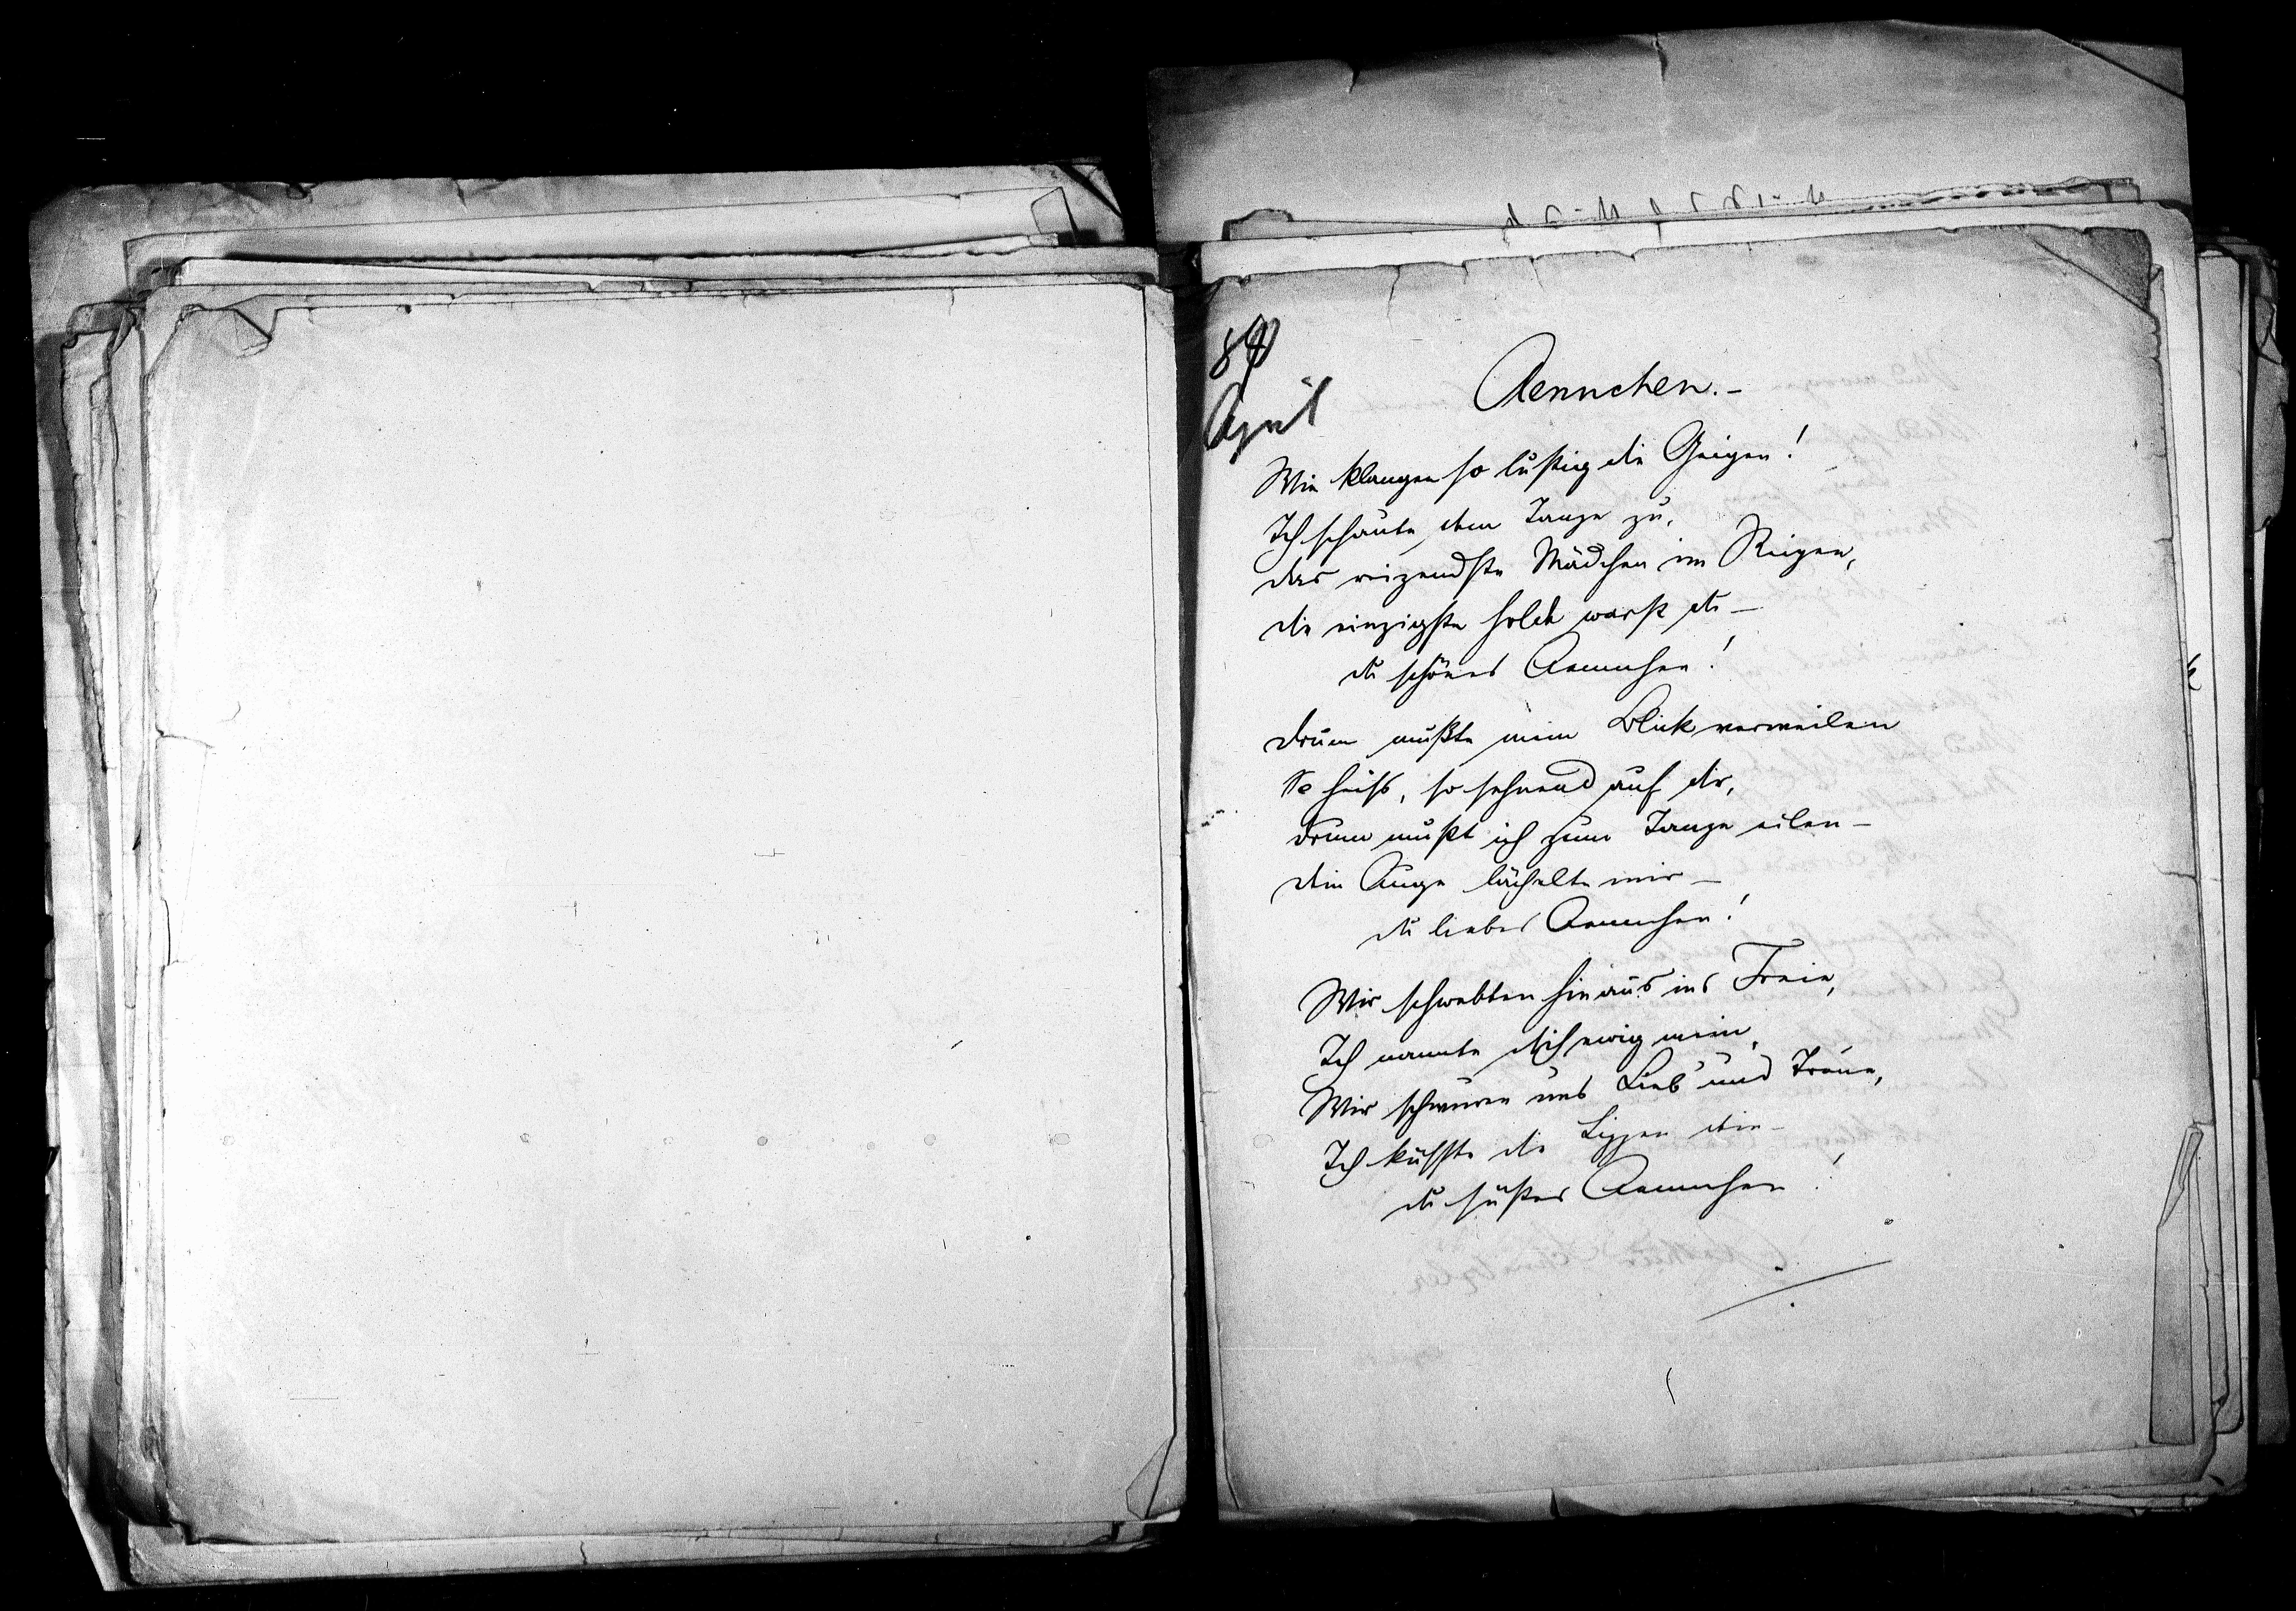 April
Aennchen. –
Wie klangen so lustig die Geigen!
Ich schaute dem Tanze zu,
das reizendste Mädchen im Reigen,
die einzigste hold warst du –
du schönes Aennchen!
drum mußte mein Blick verweilen
So heiß, so sehnend auf dir,
drum mußt ich zum Tanze eilen –
dein Auge lächelte mir –
du liebes Aennchen!
Wir schwebten hinaus ins Freie,
Ich nannte dich ewig mein,
Wir schwuren uns Lieb' und Treue,
Ich küsste die Lippen dein –
du süßes Aennchen!